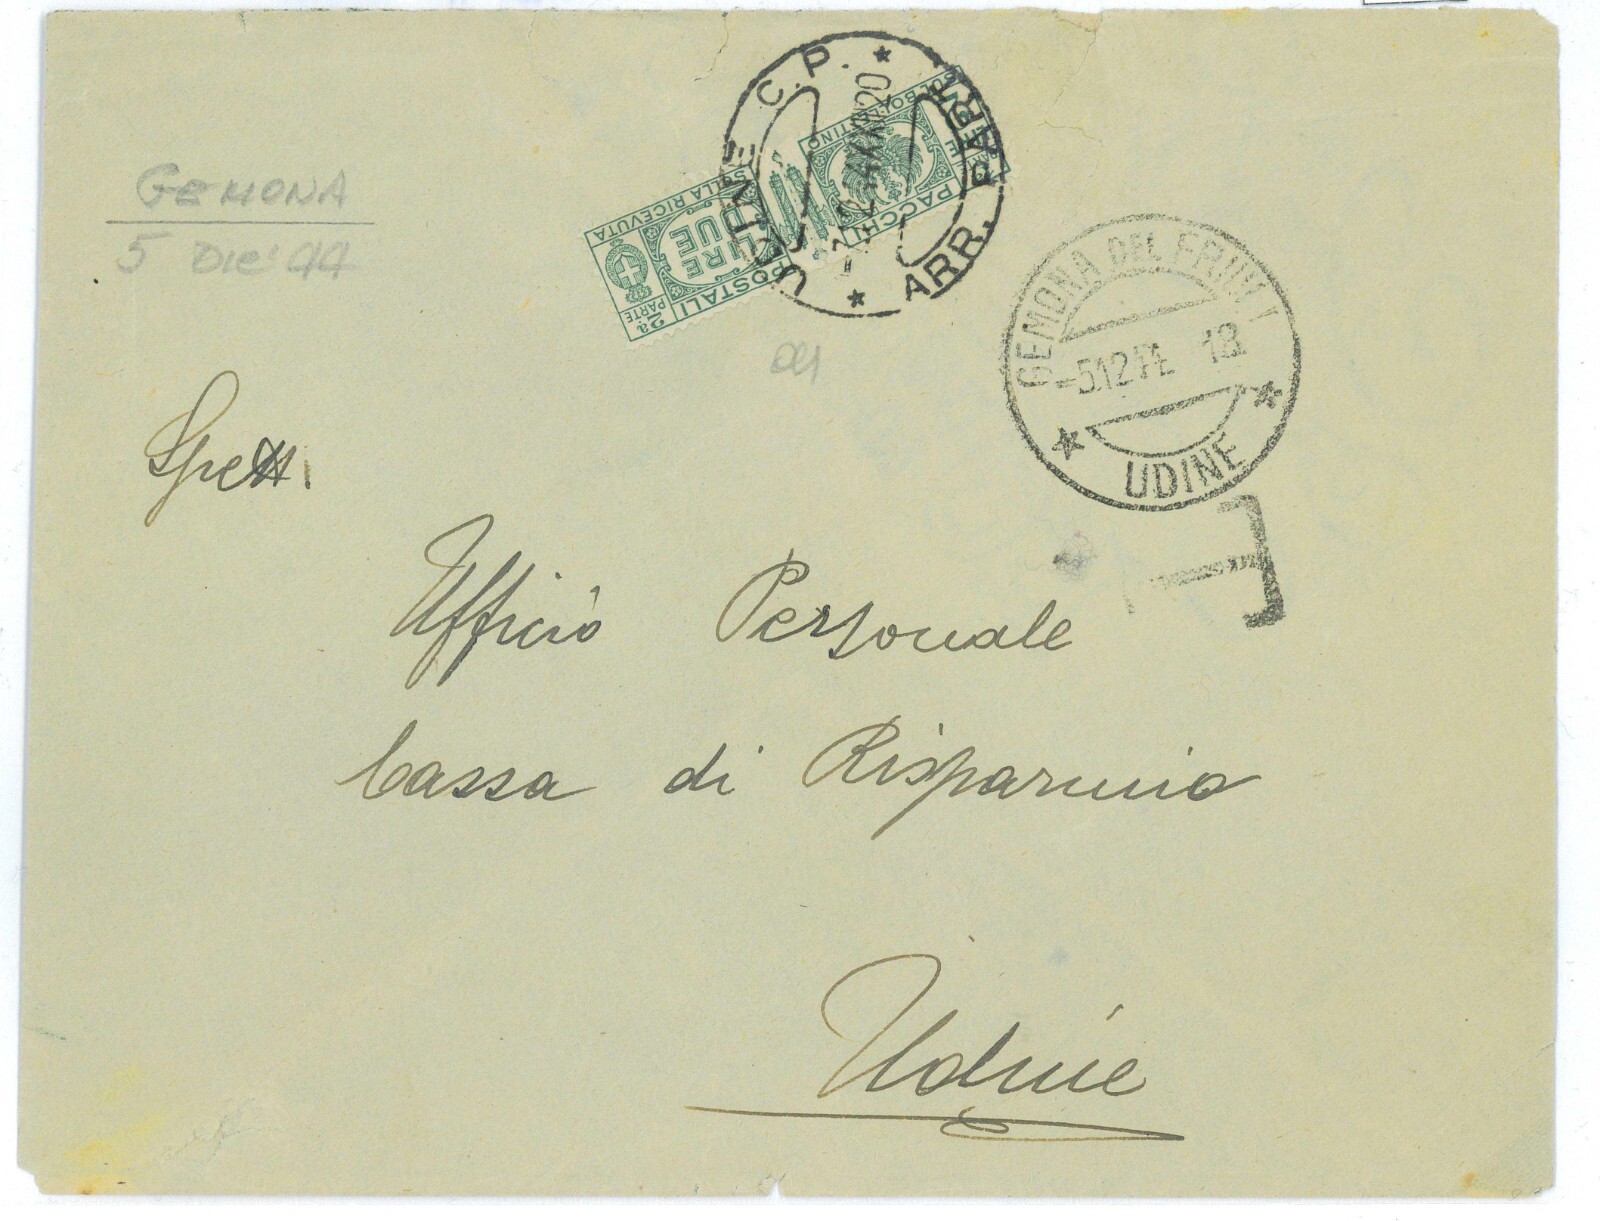 GEMONA
5 DIC 44
UDINE C.P.
ARR. PART.
PACCHI
SUL BOLLETTINO
POSTALI
SULLA RICEVUTA
LIRE
DUE
2ª
PARTE
GEMONA DEL FRIULI
-5.12.44 18
UDINE
T
Spett.
Ufficio Personale
Cassa di Risparmio
Udine